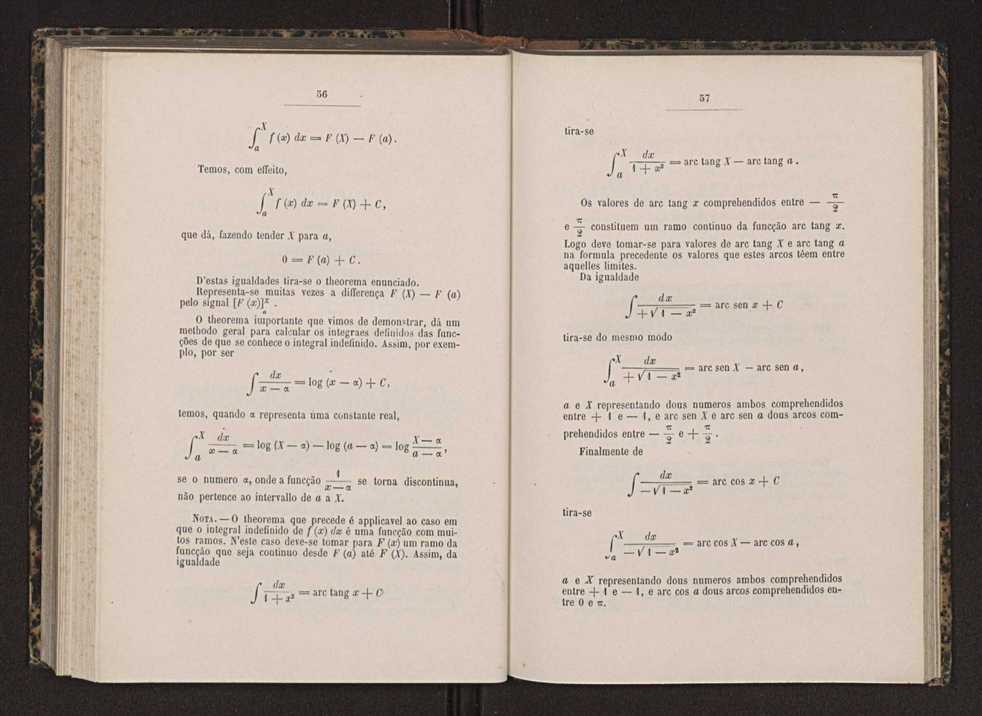 56
∫_a^X f (x) dx = F (X) — F (a).
Temos, com effeito,
∫_a^X f (x) dx = F (X) + C,
que dá, fazendo tender X para a,
0 = F (a) + C.
D'estas igualdades tira-se o theorema enunciado.
Representa-se muitas vezes a differença F (X) — F (a)
pelo signal [F (x)]_a^x .
O theorema importante que vimos de demonstrar, dá um
methodo geral para calcular os integraes definidos das func-
ções de que se conhece o integral indefinido. Assim, por exem-
plo, por ser
∫ dx/(x — α) = log (x — α) + C,
temos, quando α representa uma constante real,
∫_a^X dx/(x — α) = log (X — α) — log (a — α) = log (X — α)/(a — α),
se o numero α, onde a funcção 1/(x — α) se torna discontinua,
não pertence ao intervallo de a a X.
NOTA. — O theorema que precede é applicavel ao caso em
que o integral indefinido de f (x) dx é uma funcção com mui-
tos ramos. N'este caso deve-se tomar para F (x) um ramo da
funcção que seja continuo desde F (a) até F (X). Assim, da
igualdade
∫ dx/(1 + x²) = arc tang x + C
57
tira-se
∫_a^X dx/(1 + x²) = arc tang X — arc tang a .
Os valores de arc tang x comprehendidos entre — π/2
e π/2 constituem um ramo continuo da funcção arc tang x.
Logo deve tomar-se para valores de arc tang X e arc tang a
na formula precedente os valores que estes arcos têem entre
aquelles limites.
Da igualdade
∫ dx/(+√1 — x²) = arc sen x + C
tira-se do mesmo modo
∫_a^X dx/(+√1 — x²) = arc sen X — arc sen a,
a e X representando dous numeros ambos comprehendidos
entre + 1 e — 1, e arc sen X e arc sen a dous arcos com-
prehendidos entre — π/2 e + π/2 .
Finalmente de
∫ dx/(—√1 — x²) = arc cos x + C
tira-se
∫_a^X dx/(—√1 — x²) = arc cos X — arc cos a,
a e X representando dous numeros ambos comprehendidos
entre + 1 e — 1, e arc cos a dous arcos comprehendidos en-
tre 0 e π.